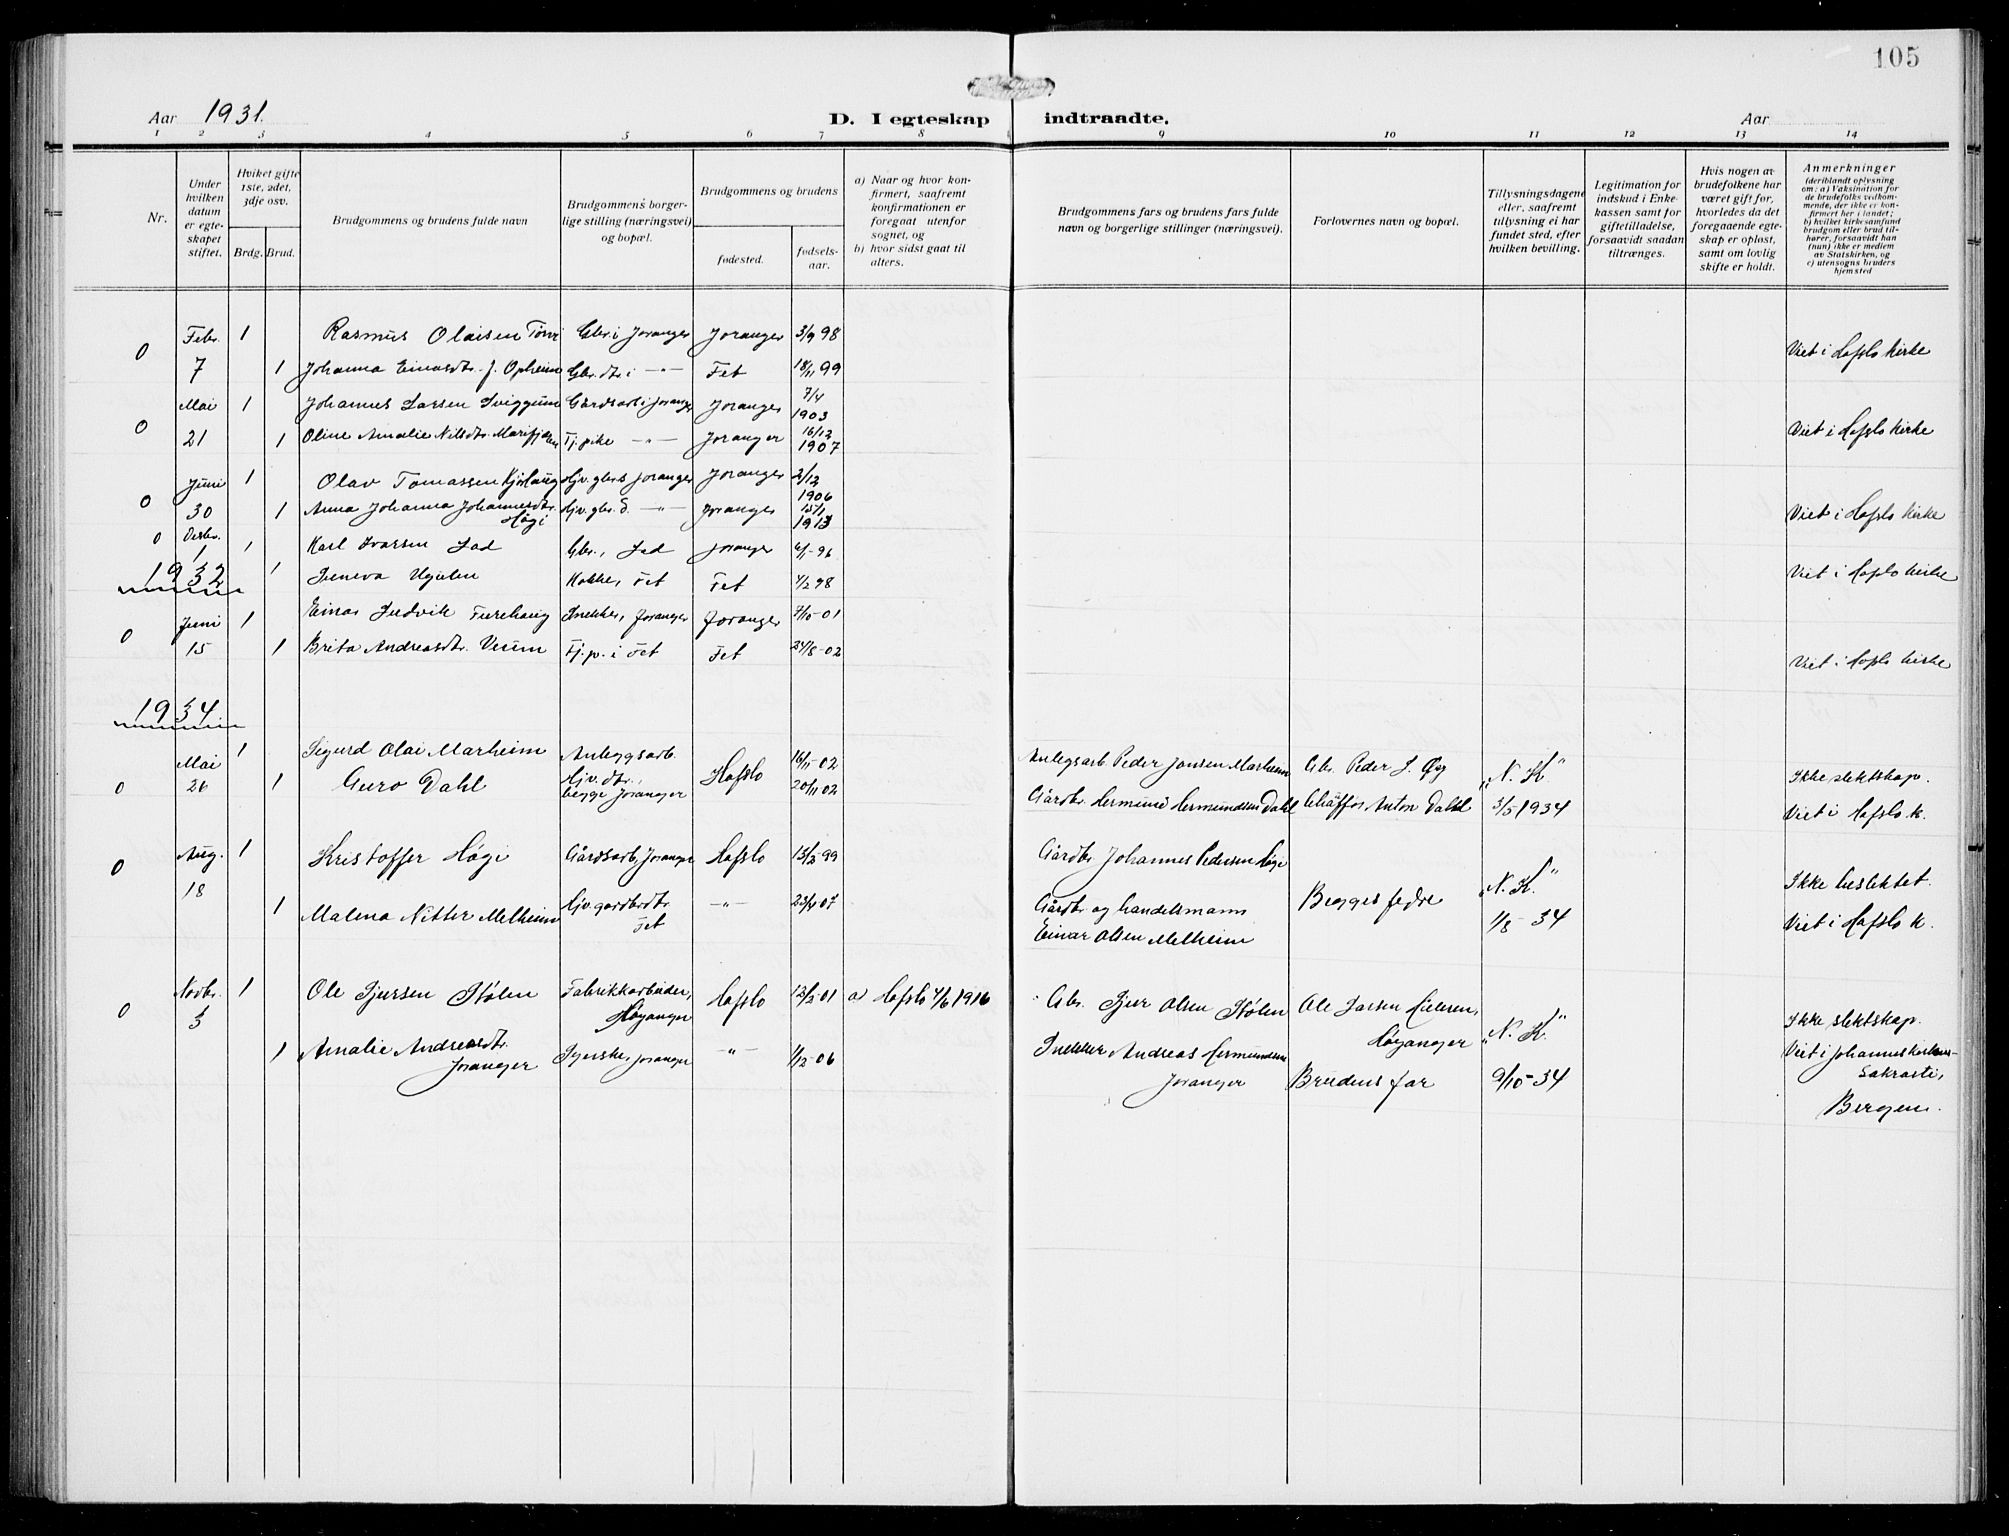 105
Aar 1931. D. I egteskap indtraadte. Aar
1 2 3 4 5 6 7 8 9 10 11 12 13 14
Nr.
Under hvilken datum er egteskapet stiftet.
Hvilket gifte 1ste, 2det, 3dje osv.
Brdg. Brud.
Brudgommens og brudens fulde navn
Brudgommens borgerlige stilling (næringsvei) og bopæl.
Brudgommens og brudens
fødested. fødselsaar.
a) Naar og hvor konfirmert, saafremt konfirmationen er foregaat utenfor sognet, og
b) hvor sidst gaat til alters.
Brudgommens fars og brudens fars fulde navn og borgerlige stillinger (næringsvei).
Forlovernes navn og bopæl.
Tillysningsdagene eller, saafremt tillysning ei har fundet sted, efter hvilken bevilling.
Legitimation for indskud i Enkekassen samt for giftetilladelse, forsaavidt saadan tiltrænges.
Hvis nogen av brudefolkene har været gift før, hvorledes da det foregaaende egteskap er opløst, samt om lovlig skifte er holdt.
Anmerkninger
(deriblandt oplysning om: a) Vaksination for de brudefolks vedkommende, der ikke er konfirmert her i landet; b) hvilket kirkesamfund brudgom eller brud tilhører, forsaavidt han (hun) ikke er medlem av Statskirken, og c) utensogns bruders hjemsted
0 Febr. 1 Rasmus Olaisen Gbr. i Joranger Joranger 3/9 98 Viet i Hafslo kirke
7 1 Johanna Einarsdtr. f. Opheim Gbr. dtr. i —"— Fet 18/11 99
0 Mai 1 Johannes Larsen Sviggum Gårdsarb. i Joranger Joranger 7/4 1903 Viet i Hafslo kirke
21 1 Oline Amalie Nilsdtr. Marifjæren Tj. pike —"— Joranger 16/12 1907
0 Juni 1 Olav Tomassen Kjørhaug Gjv. gbr. s Joranger Joranger 2/12 1906 Viet i Hafslo kirke
30 1 Anna Johanna Johannesdtr. Høgi Gjv. gbr. d. —"— Joranger 15/1 1913
0 Desbr. 1 Karl Ivarsen Lad Gbr., Lad Joranger 6/1-96 Viet i Hafslo kirke
1 1 Kokke, Fet Fet 4/2 98
1932
0 Juni 1 Einar Ludvik Furehaug Snekker, Joranger Joranger 7/10-01 Viet i Hafslo kirke
15 1 Brita Andreasdtr. Veum Tj. p. i Fet Fet 24/8-02
1934
0 Mai 1 Sigurd Olai Marheim Anleggsarb. Hafslo 16/11-02 Anlegsarb Peder Jonsen Marheim Gbr. Peder J. Øy "N. K." Ikke slektskap.
26 1 Guro Dahl Gjv. dtr., begge Joranger 20/11 02 Gårdbr. Hermund Hermundsen Dahl Chåffør Anton Dahl 3/5 1934 Viet i Hafslo k.
0 Aug. 1 Kristoffer Høgi Gårdsarb, Joranger Hafslo 13/3-99 Gårdbr. Johannes Pedersen Høgi Begges fedre "N. K." Ikke beslektet.
18 1 Malena Nitter Melheim Gjv. gardbrdtr. Fet —"— 23/4-07 Gårdbr. og handelsmann Einar Olsen Melheim 1/8-34 Viet i Hafslo k.
0 Novbr. 1 Ole Sjursen Stølen Fabrikkarbeider, Høyanger Hafslo 12/3-01 a) Hafslo 4/6 1916 Gbr. Sjur Olsen Stølen Ole Larsen Høyanger "N. K." Ikke slektskap.
3 1 Amalie Andreasdtr. Joranger Syerske, Joranger —"— 1/12-06 Snekker Andreas Hermundsen Joranger Brudens far 9/10-34 Viet i Johanneskirkens Sakristi, Bergen.